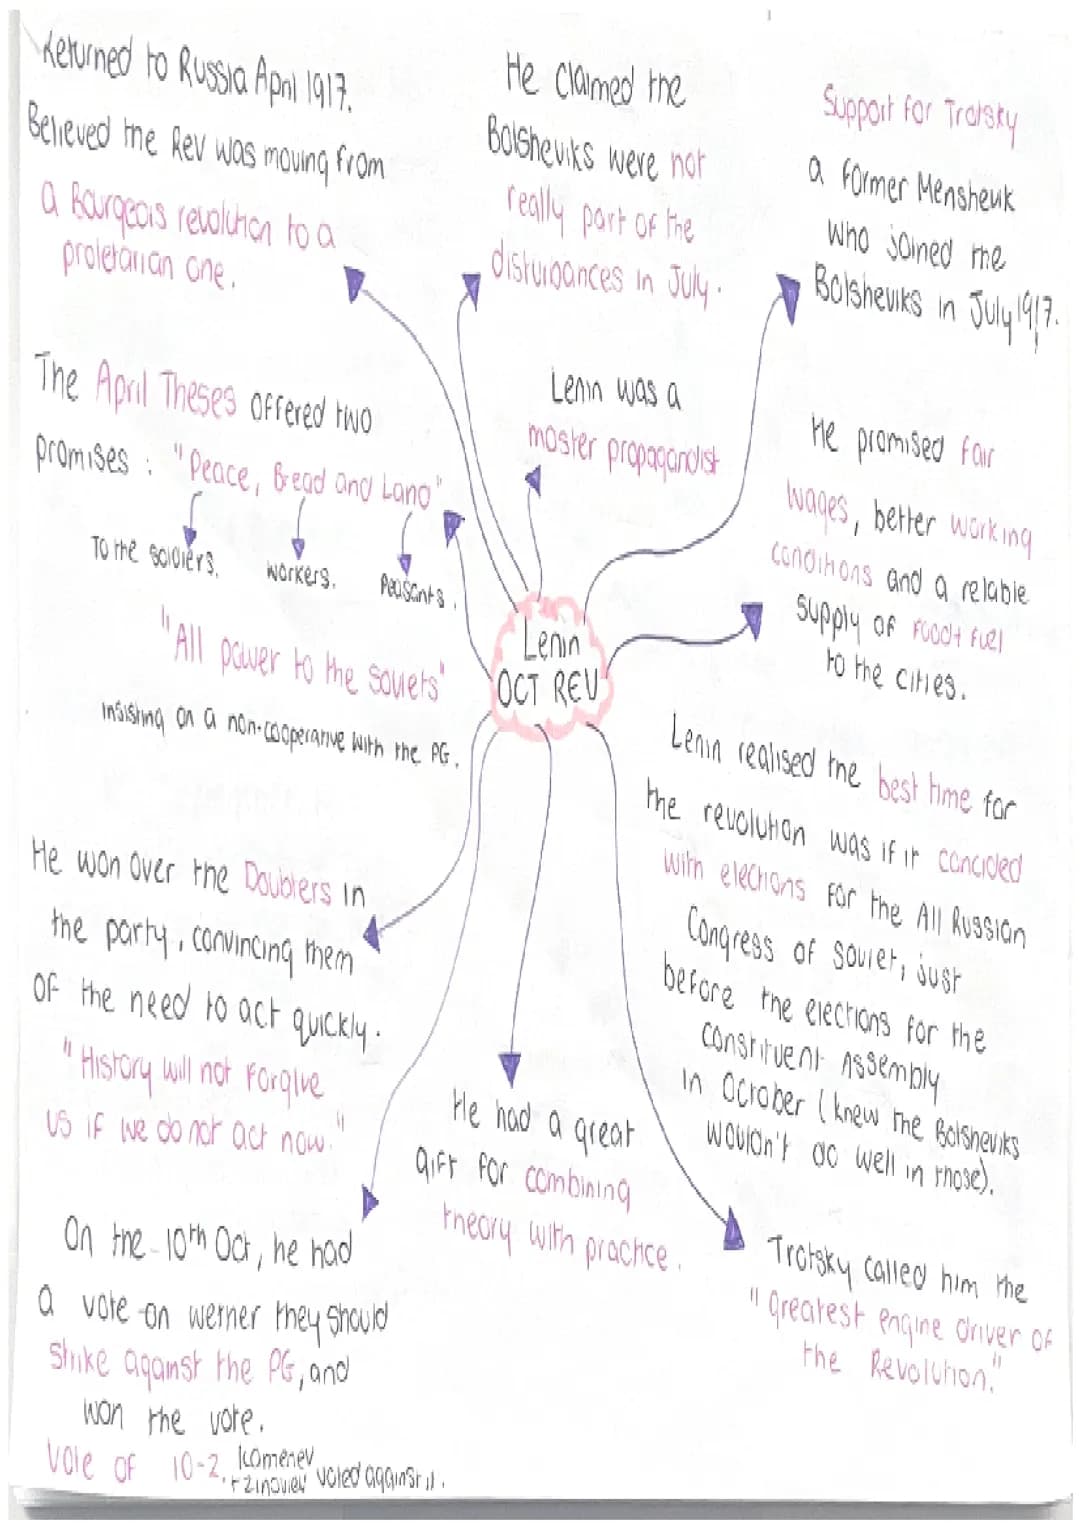 Returned to Russia April 1917.
Believed the Rev was moving from
a Bourgeois revolution to a
proletarian one.
He claimed the
Bolsheviks were not
really part of the
disturbances in July.
Support for Trotsky
a former Menshevik
who joined the
Bolsheviks in July 1917.
The April Theses offered two
promises: "Peace, Bread and Land"
To the soldiers. workers. Peasants.
"All power to the soviets"
insisting on a non-cooperative with the PG.
Lenin was a
master propagandist
He promised fair
wages, better working
conditions and a relable
supply of food + fuel
to the cities.
Lenin
OCT REV
Lenin realised the best time for
the revolution was if it concided
with elections for the All Russian
Congress of Soviet, just
before the elections for the
Constituent Assembly
in October (knew the Bolsheviks
wouldn't do well in those).
He won over the Doubters in
the party, convincing them
of the need to act quickly.
"History will not forgive
us if we do not act now."
He had a great
gift for combining
theory with practice.
On the 10th Oct, he had
a vote on wether they should
strike against the PG, and
won the vote.
Vote of 10-2. Kamenev
+ Zinoviev voted against it.
Trotsky called him the
"greatest engine driver of
the Revolution."